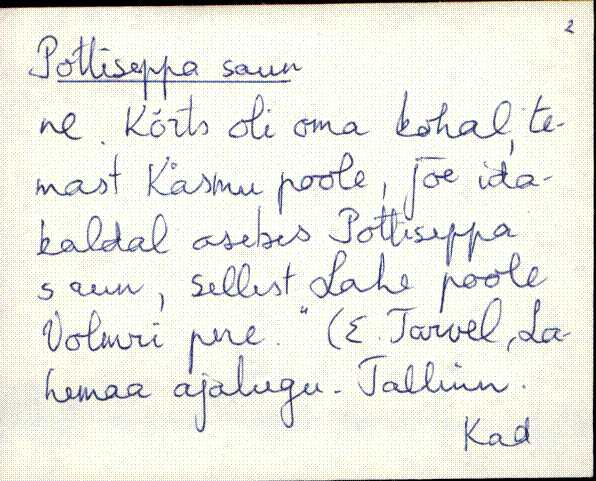 2
Pottiseppa saun
ne. Kõrts oli oma kohal, te-
mast Käsmu poole, jõe ida-
kaldal asetses Pottiseppa
saun, sellest Lahe poole
Volmri pere." (E. Tarvel, La-
hemaa ajalugu. Tallinn.
Kad